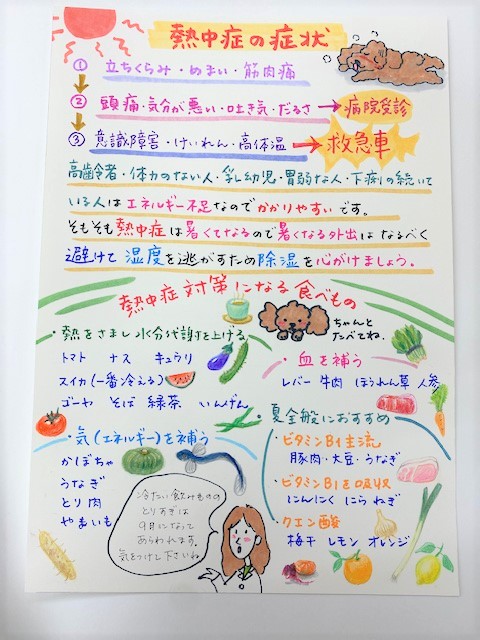 熱中症の症状
① 立ちくらみ・めまい・筋肉痛
② 頭痛・気分が悪い・吐き気・だるさ→病院受診
③ 意識障害・けいれん・高体温→救急車
高齢者・体力のない人・乳幼児・胃弱な人・下痢の続いて
いる人はエネルギー不足なのでかかりやすいです。
そもそも熱中症は暑くてなるので暑くなる外出はなるべく
避けて湿度を逃がすため除湿を心がけましょう。
熱中症対策になる食べもの
ちゃんと
たべてね.
・熱をさまし水分代謝を上げる
トマト ナス キュウリ
スイカ(一番冷える)
ゴーヤ そば 緑茶 いんげん
・血を補う
レバー 牛肉 ほうれん草 人参
・気(エネルギー)を補う
かぼちゃ
うなぎ
とり肉
やまいも
・夏全般におすすめ
・ビタミンB1主流
豚肉・大豆・うなぎ
・ビタミンB1を吸収
にんにく にら ねぎ
・クエン酸
梅干 レモン オレンジ
冷たい飲みものの
とりすぎは
9月になって
あらわれます.
気をつけて下さいね